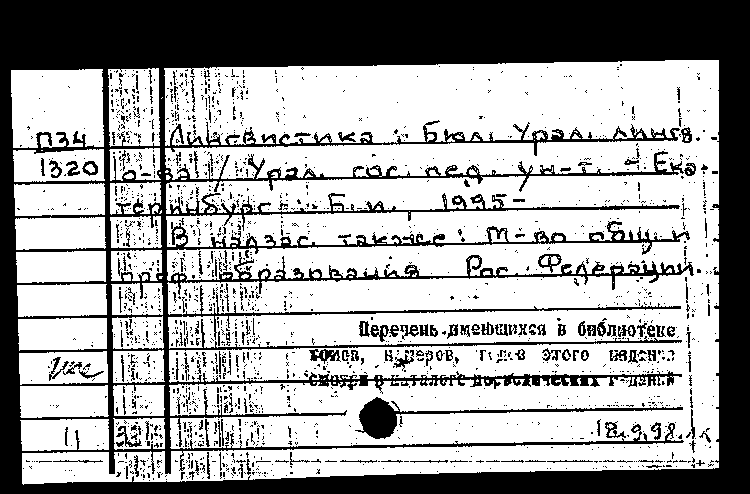 П34 Лингвистика : Бюл. Урал. лингв.
1320 о-ва / Урал. гос. пед. ун-т. - Ека-
теринбург : Б. и., 1995-
В надзаг. также: М-во общ. и
проф. образования Рос. Федерации.
Перечень имеющихся в библиотеке
томов, номеров, годов этого издания
смотри в каталоге периодических изданий
11 33 18.9.98.